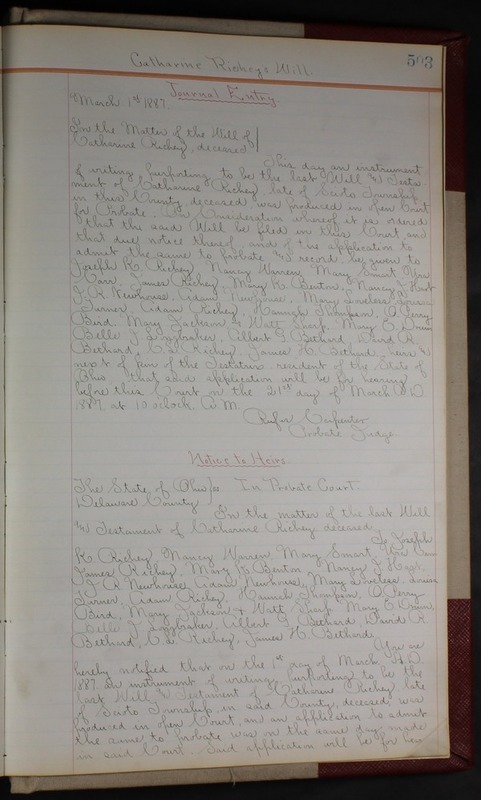 503
Catharine Richeys Will.
Journal Entry.
March 1st 1887.
In the Matter of the Will of
Catharine Richey, deceased
This day an instrument
of writing, purporting to be the last Will & Testa-
ment of Catharine Richey late of Scioto Township
in this County, deceased was produced in open Court
for Probate. On Consideration whereof it is ordered
that the said Will be filed in this Court, and
that due notice thereof and of the application to
admit the same to probate & record be given to
Joseph K. Richey, Nancy Warren, Mary Smart,
Carr, James Richey, Mary K. Benton, Nancy J.
J. R. Newhouse, Adam Newhouse, Mary Loveless, Louisa
Turner, Adam Richey, Hannah Thompson, O. Perry
Bird, Mary Jackson & Watt Sharp, Mary E.
Belle J. Albert G. Bethard, David R.
Bethard, Richey, James H. Bethard, heirs &
next of kin of the Testatrix, resident of the State of
Ohio that said application will be for hearing
before this Court on the 21st day of March A.D.
1887, at 10 o'clock A.M.
Rufus Carpenter
Probate Judge
Notice to Heirs.
The State of Ohio ss In Probate Court.
Delaware County
In the matter of the last Will
& Testament of Catharine Richey, deceased.
To Joseph
K Richey, Nancy Warren, Mary Smart, Carr
James Richey, Mary K Benton, Nancy J.
J R Newhouse, Adam Newhouse, Mary Loveless, Louisa
Turner, Adam Richey, Hannah Thompson, O. Perry
Bird, Mary Jackson & Watt Sharp Mary E.
Belle J. Albert G. Bethard, David R.
Bethard, Richey, James H. Bethard.
You are
hereby notified that on the 1st day of March A.D.
1887 an instrument of writing, purporting to be the
last Will & Testament of Catharine Richey late
of Scioto Township in said County, deceased, was
produced in open Court, and an application to admit
the same to probate was on the same day made
in said Court. Said application will be for hear